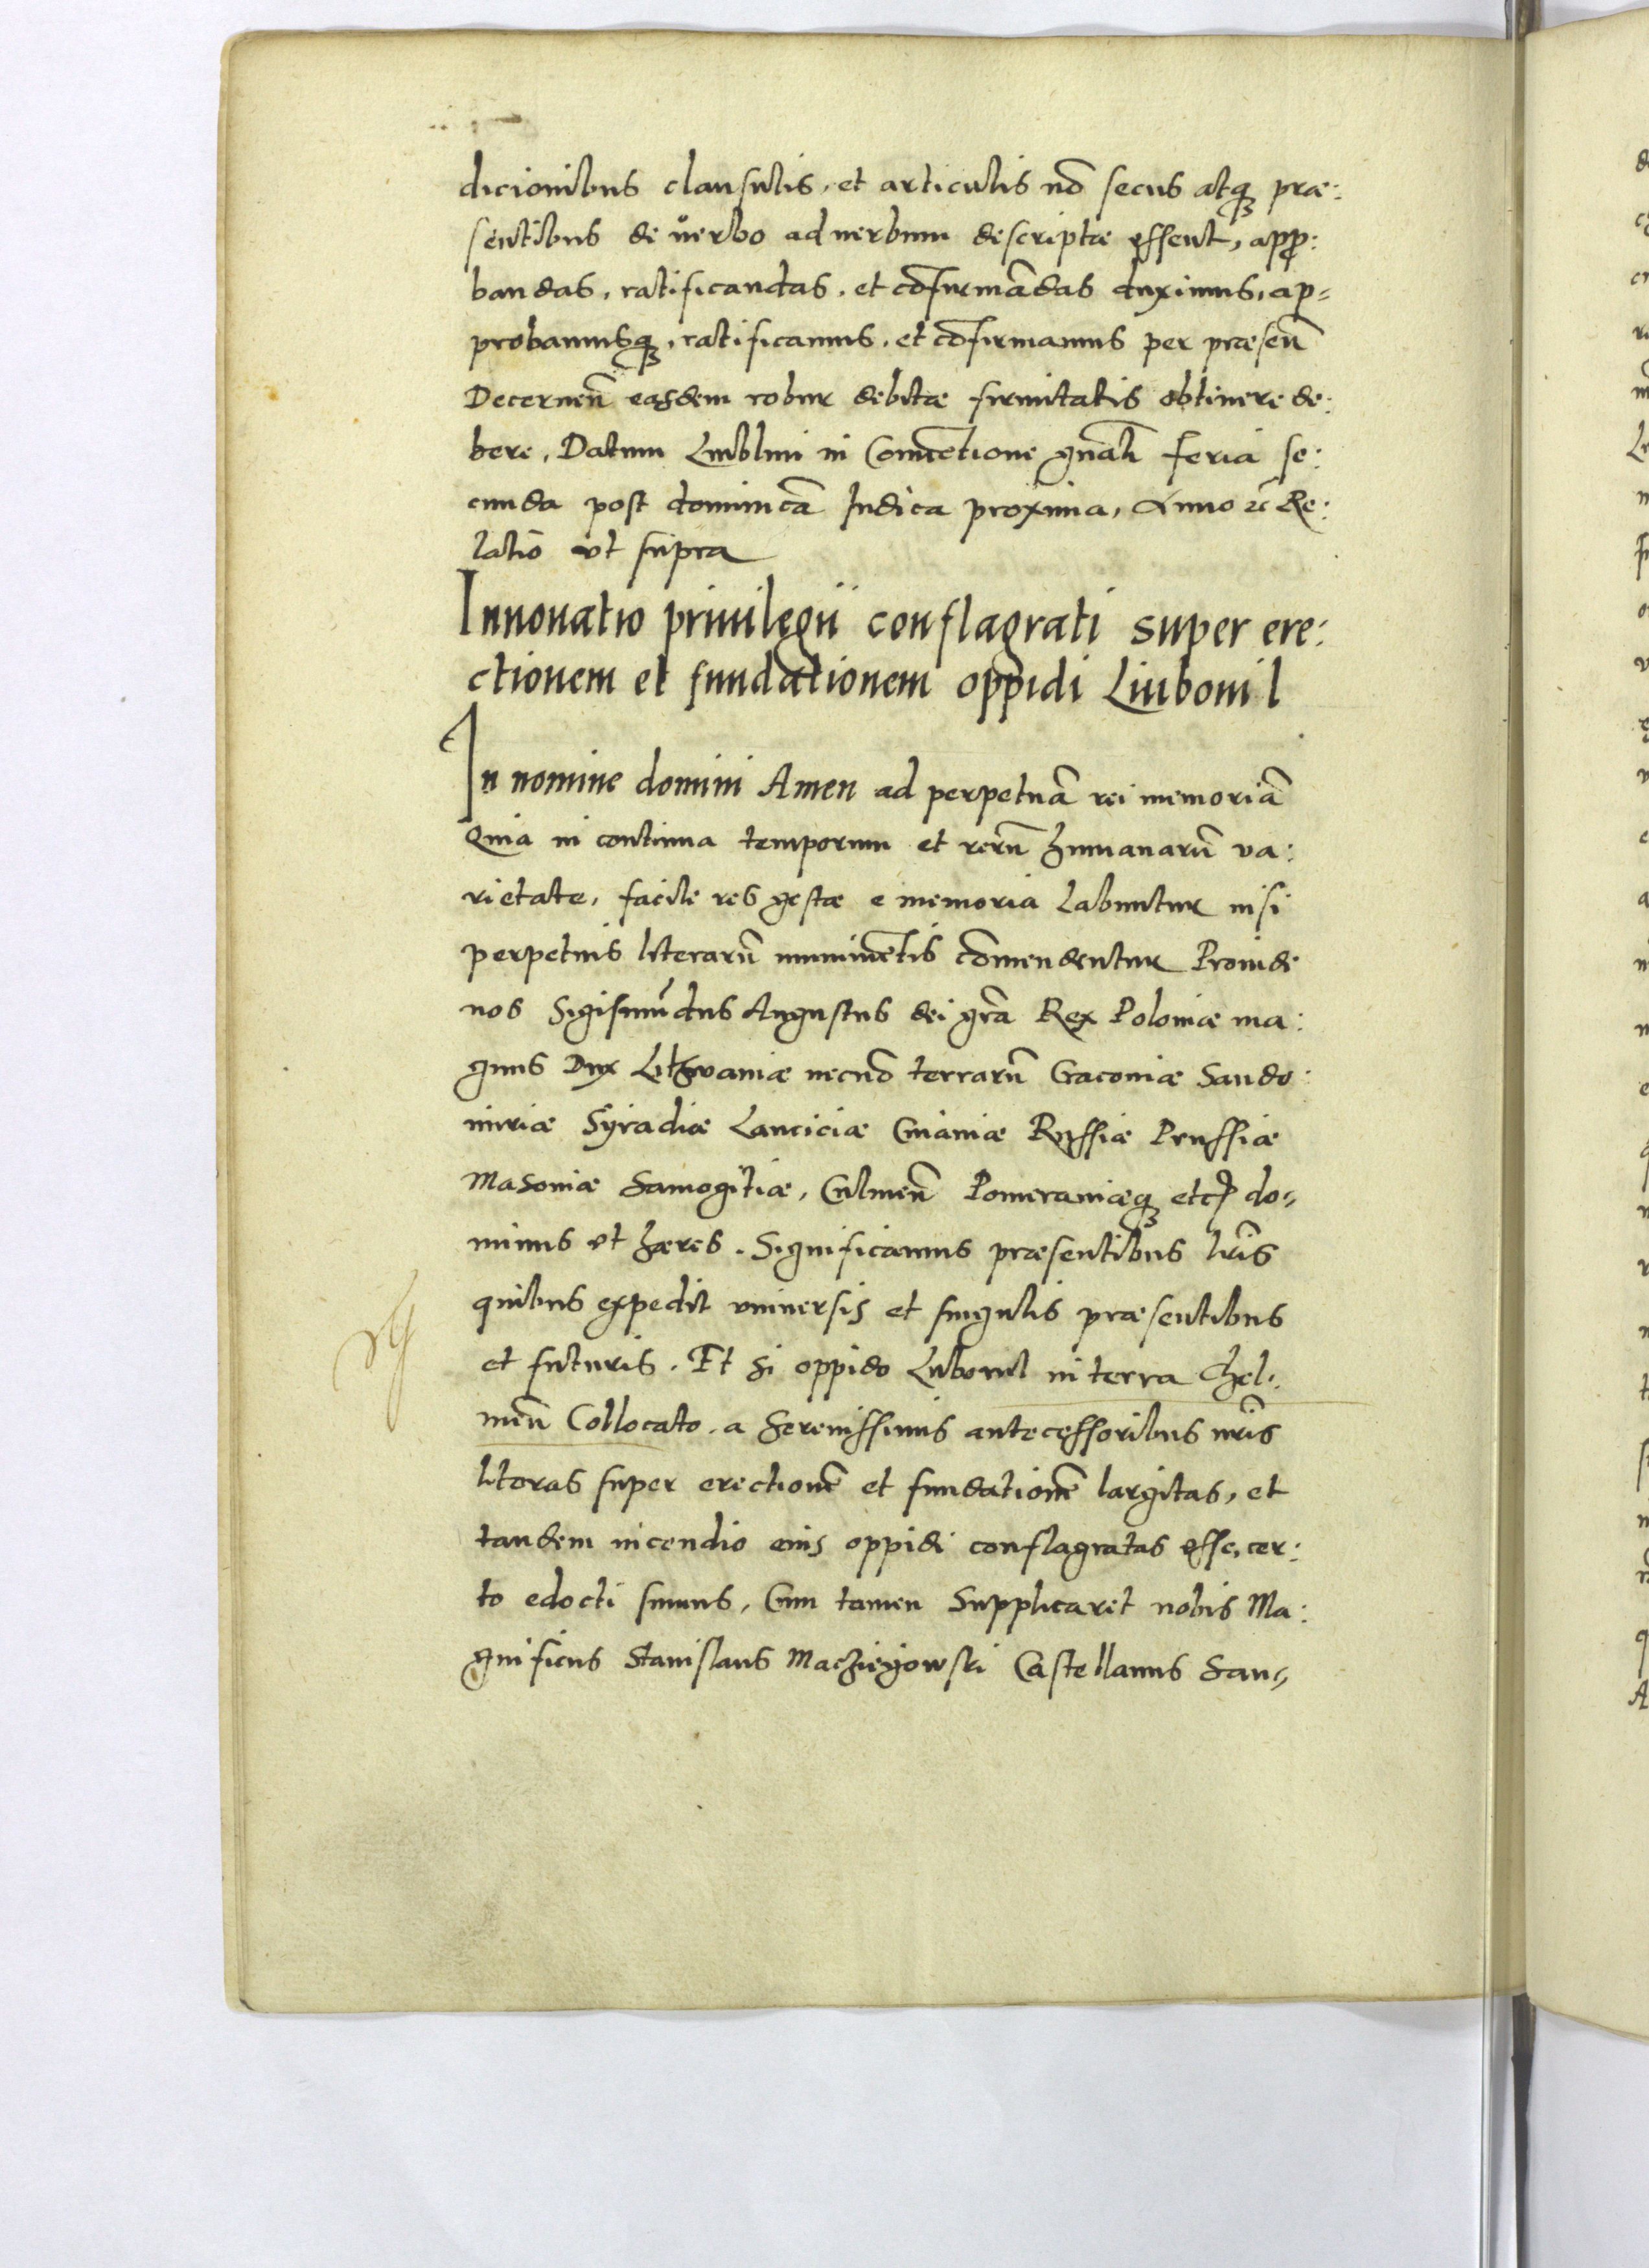 dicionibus clausulis, et articulis nō secus atq₃ præ:
sentibus de uerbo ad uerbum descriptæ essent, appro:
bandas, ratificandas, et cōfirmādas duximus, ap=
probamusq₃, ratificamus, et cōfirmamus per præsen̄
Decernen̄ easdem robur debitæ firmitatis obtinere de:
bere. Datum Lublini in Conuētione gnāli feria se:
cunda post dominicā Iudica proxima, Anno ꝛc̄ Re:
latio vt supra
Innouatio priuilegii conflagrati super ere:
ctionem et fundationem oppidi Liuboml
In nomine domini Amen ad perpetuā rei memoriā
Quia in continua temporum et rerū humanarū va:
rietate, facile res gestæ e memoria labuntur nisi
perpetuis literarū munimētis cōmendentur Proinde
nos Sigismūdus Augustus dei grā Rex Poloniæ ma:
gnus Dux Lithvaniæ necnō terrarū Cracouiæ Sando:
miriæ Syradiæ Lanciciæ Cuiauiæ Russiæ Prussiæ
Masoviæ Samogitiæ, Culmen̄ Pomeraniæq₃ etc do=
minus et hæres. Significamus præsentibus lris̄
quibus expedit vniuersis et singulis præsentibus
et futuris. Et si oppido Luboml in terra Chel:
men̄ Collocato, a Serenissimis antecessoribus nris̄
literas super erectionē et fundationē largitas, et
tandem incendio eius oppidi conflagratas esse, cer:
to edocti sumus, Cum tamen Supplicaret nobis Ma:
gnificus Stanislaus Macziejowski Castellanus San=